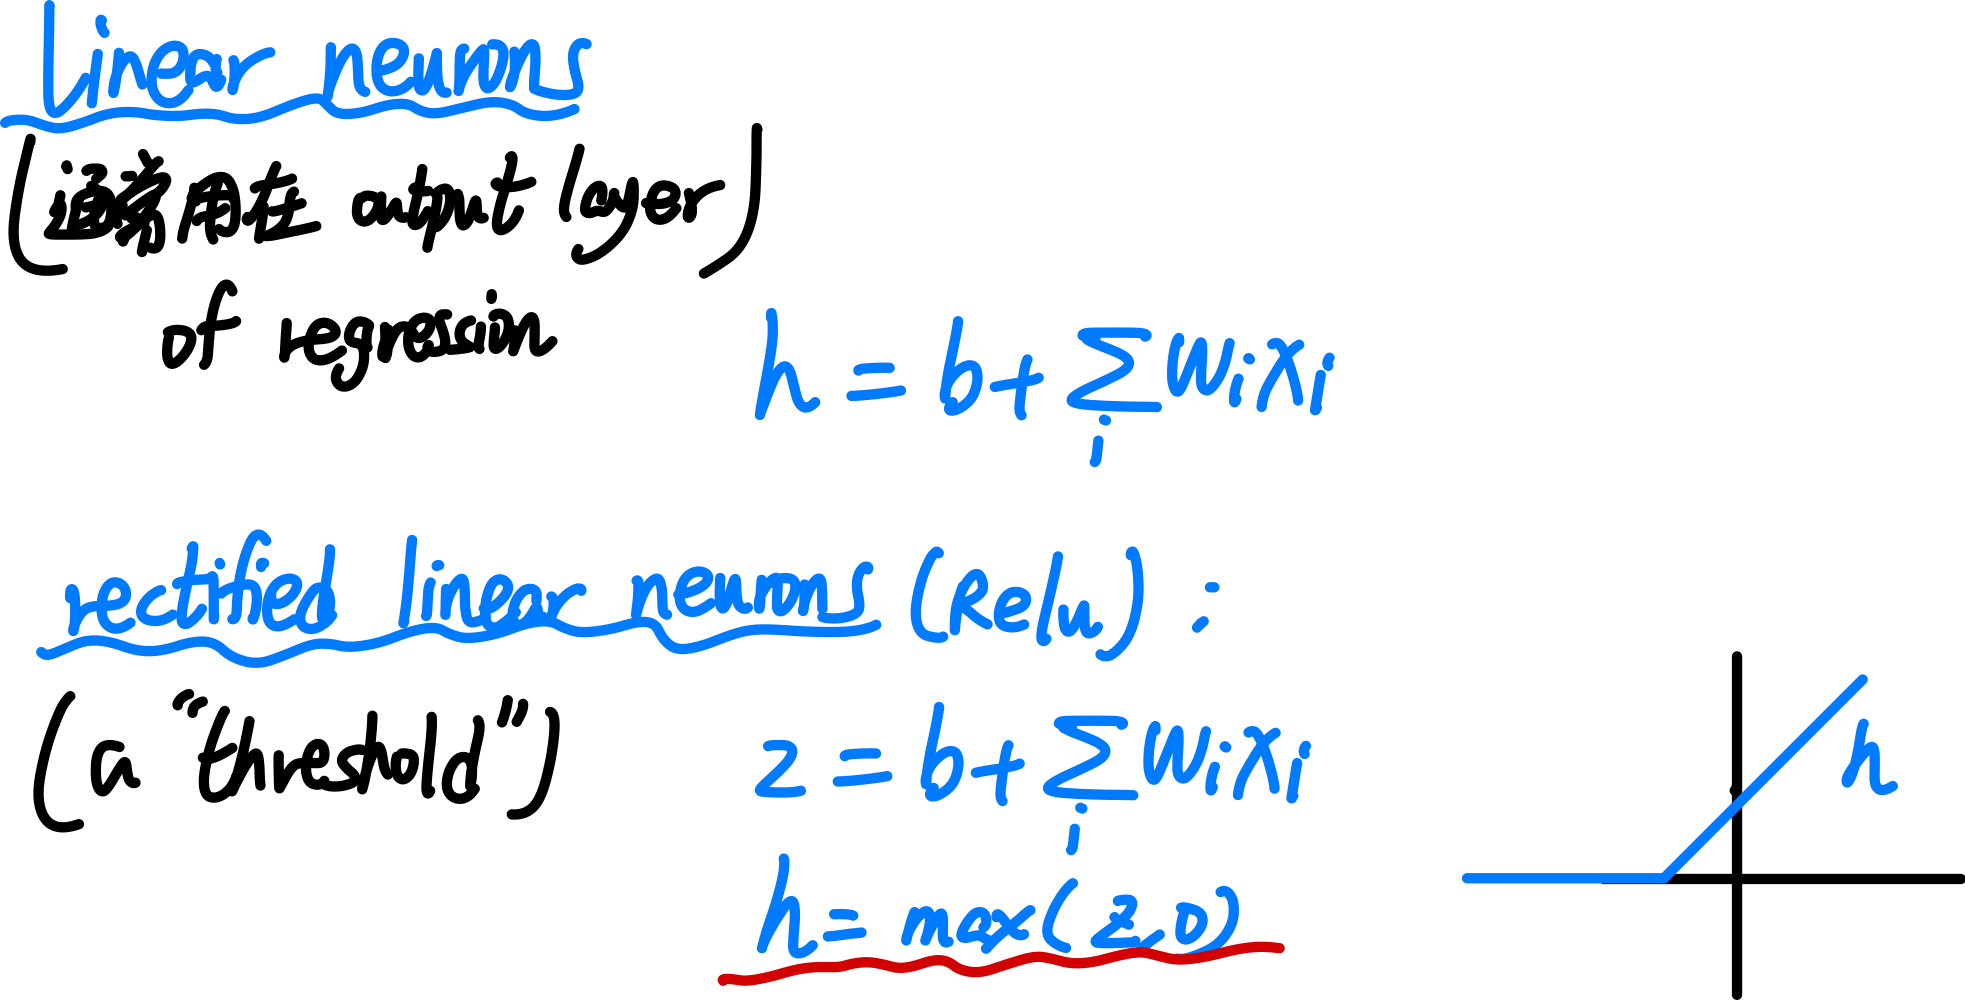 linear neurons
(通常用在 output layer)
of regression
h = b + ∑ᵢ wᵢxᵢ
rectified linear neurons (Relu) :
(a "threshold")
z = b + ∑ᵢ wᵢxᵢ
h
h = max(z,0)